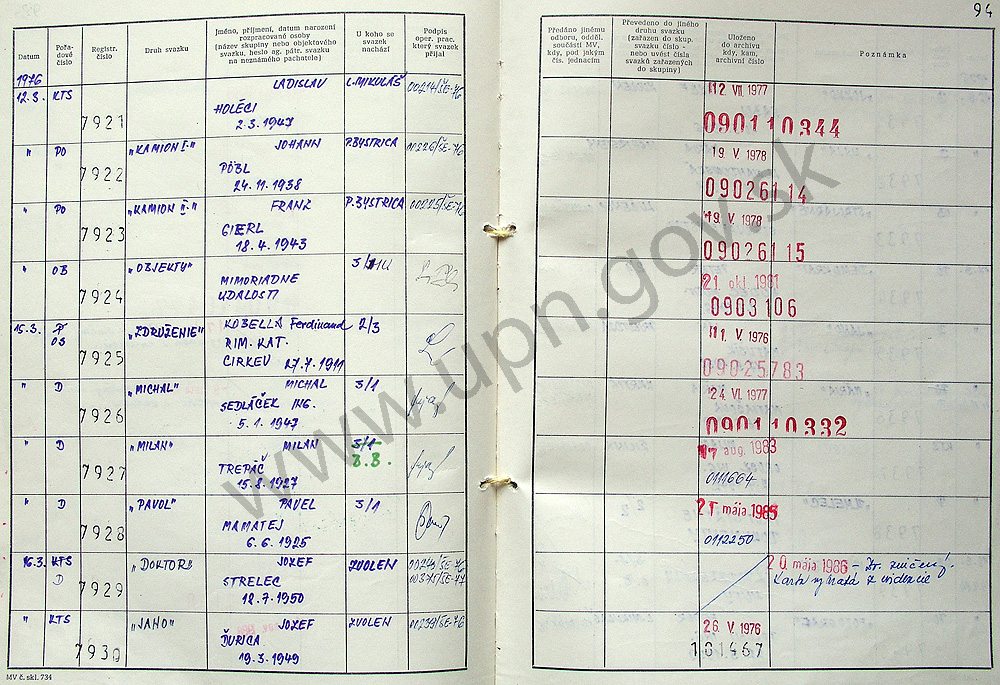 94
Datum
Pořadové číslo
Registr. číslo
Druh svazku
Jméno, příjmení, datum narození rozpracované osoby (název skupiny nebo objektového svazku, heslo ag. pátr. svazku na neznámého pachatele)
U koho se svazek nachází
Podpis oper. prac. který svazek přijal
Předáno jinému odboru, odděl. součásti MV, kdy, pod jakým čís. jednacím
Převedeno do jiného druhu svazku (zařazen do skup. svazku číslo - nebo uvést čísla svazků zařazených do skupiny)
Uloženo do archivu kdy, kam, archivní číslo
Poznámka
1976
12.3. KTS 7921 LADISLAV L.MIKULÁŠ 00214/ŠE-76 12 VII 1977
HOLÉCI
2.3.1947 090110344
" PO 7922 "KAMION I." JOHANN P.BYSTRICA 00226/ŠE-76 19. V. 1978
PÖBL
24.11.1938 09026114
" PO 7923 "KAMION II." FRANK P.BYSTRICA 00225/ŠE-76 19. V. 1978
GIERL
18.4.1943 09026115
" OB 7924 "OBJEKTY" 21. okt. 1981
MIMORIADNE
UDALOSTI 0903106
15.3. OS 7925 "ZDRUŽENIE" KOBELLA Ferdinand 2/3 11 V. 1976
RIM. KAT.
CIRKEV 27.7.1911 09025783
" D 7926 "MICHAL" MICHAL S/1 24. VI. 1977
SEDLÁČEK ING.
5.1.1947 090110332
" D 7927 "MILAN" MILAN S/1 17 aug. 1983
B.B.
TREPÁČ
15.8.1927 0111664
" D 7928 "PAVOL" PAVEL S/1 21 mája 1985
MAMATEJ
6.6.1925 0112250
16.3. KTS 7929 "DOKTOR" JOZEF ZVOLEN 00240/ŠE-76 20. mája 1986 - Zr. zničený.
D STRELEC Karta vybratá z evidencie
12.7.1950
" KTS 7930 "JANO" JOZEF ZVOLEN 00239/ŠE-76 26. V. 1976
ĎURICA
19.3.1949 101467
MV č. skl. 734
www.upn.gov.sk